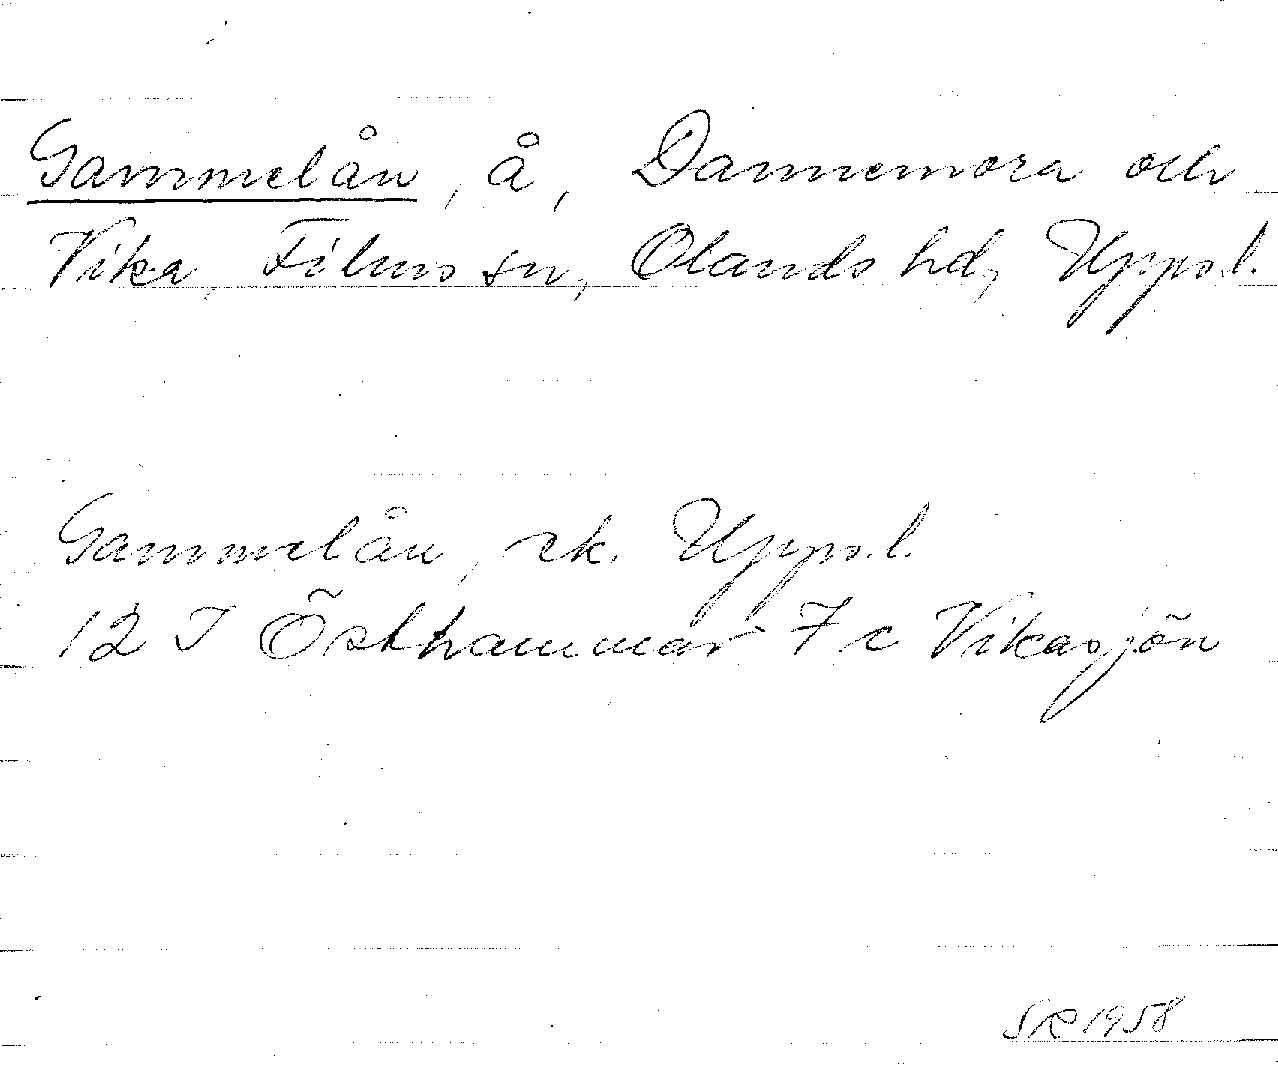 Gammelån, å, Dannemora och
Vika, Films sn, Olands hd, Uppsl.
Gammelån, ek. Uppsl.
12 I Östhammar 7c Vikasjön
SR 1958